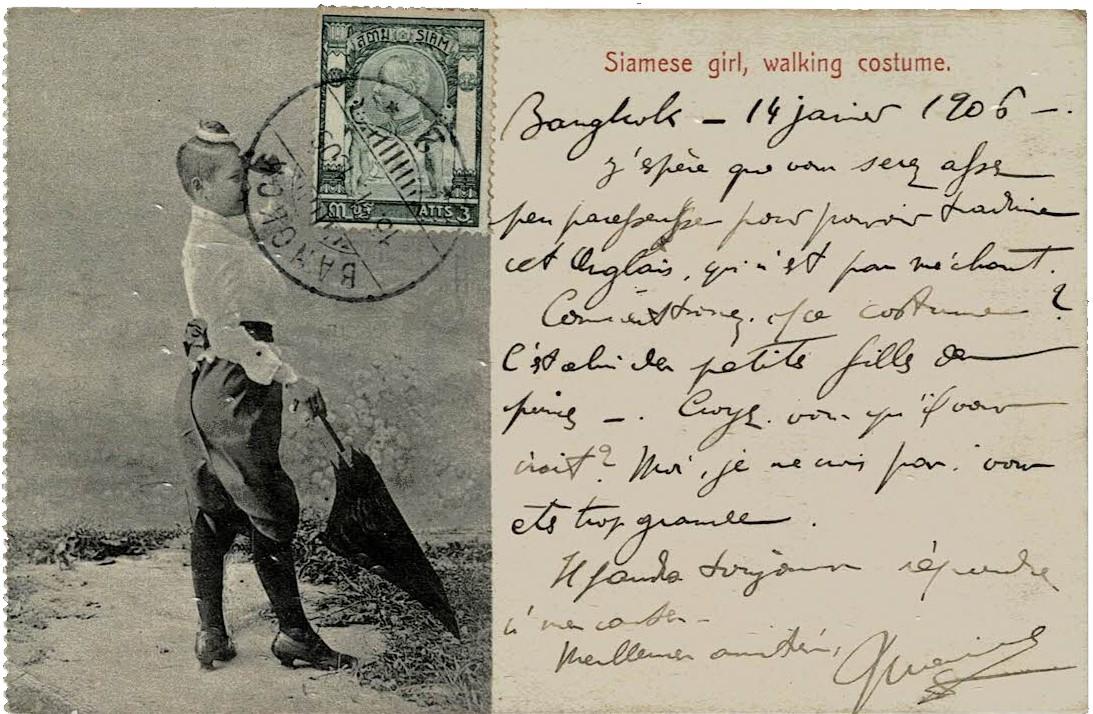 สยาม SIAM
๓ อัฐ ATTS 3
BANGKOK
Siamese girl, walking costume.
Bangkok – 14 janvier 1906 –.
J'espère que vous serez assez
peu paresseuse pour pouvoir traduire
cet Anglais, qui n'est pas méchant.
Comment trouvez-v/s ce costume ?
C'est celui des petites filles de
–. Croyez-vous qu'il vous
irait ? Moi, je ne crois pas. vous
etes trop grande.
Il faudra toujours répondre
à mes cartes –
Meilleures amitiés,